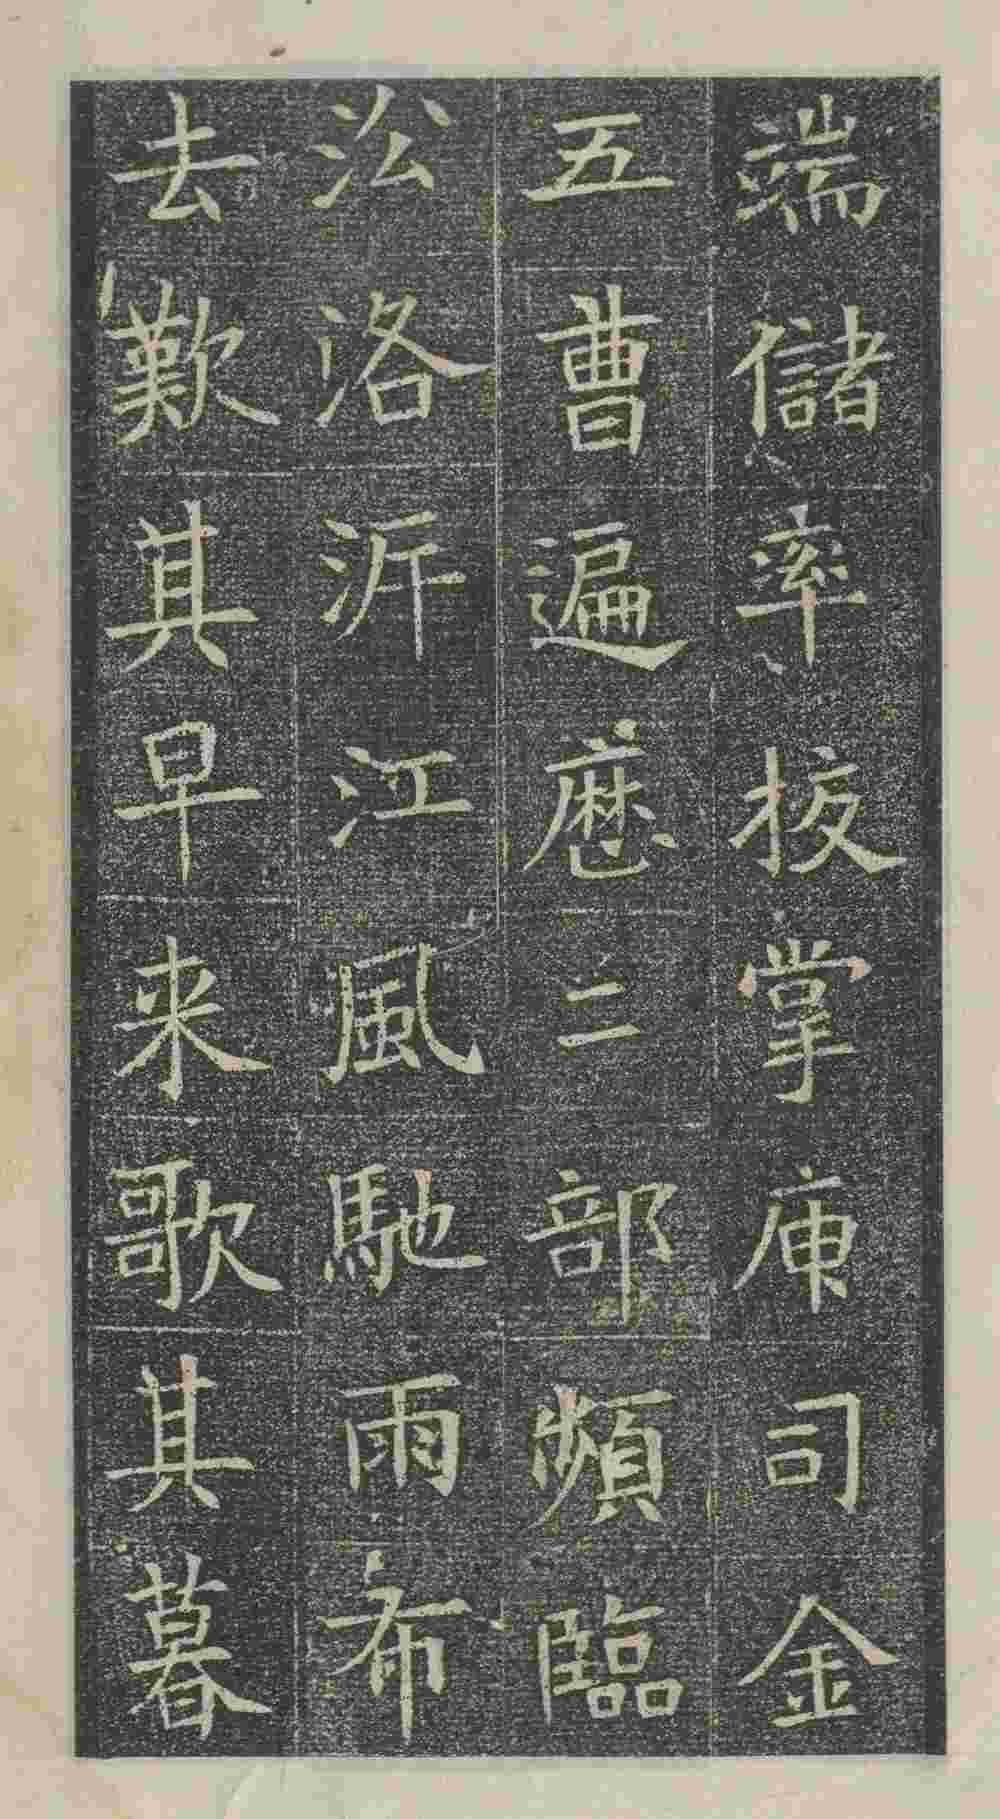 端儲率授掌庾司金
五曹遍歷二部頻臨
㳂洛泝江風馳雨布
去歎其早来歌其暮